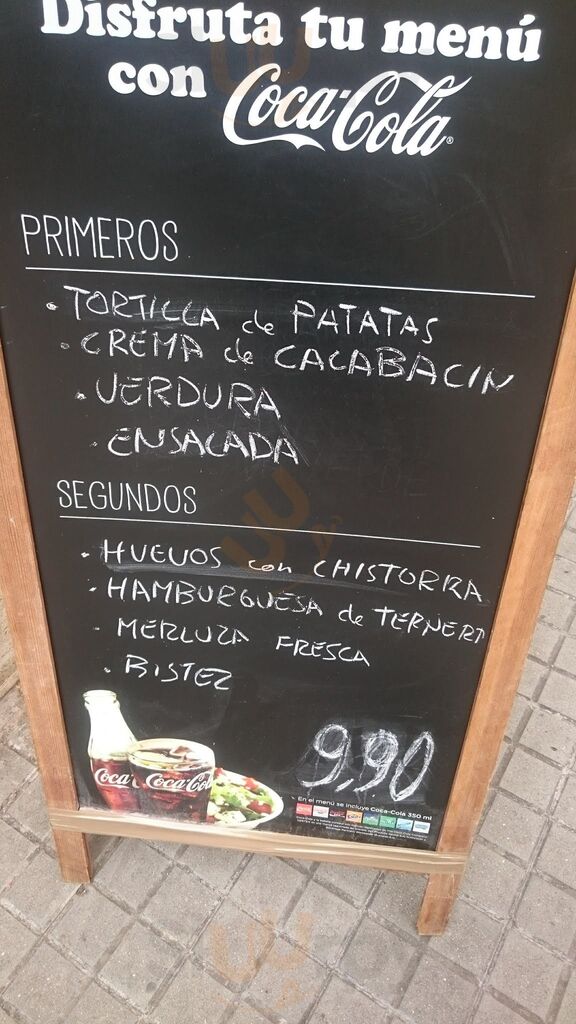 Disfruta tu menú
con Coca-Cola®
PRIMEROS
• TORTILLA de PATATAS
• CREMA de CALABACIN
• VERDURA
• ENSALADA
SEGUNDOS
• HUEVOS con CHISTORRA
• HAMBURGUESA de TERNERA
• MERLUZA FRESCA
• BISTEZ
9,90
Coca-Cola
En el menú se incluye Coca-Cola 350 ml